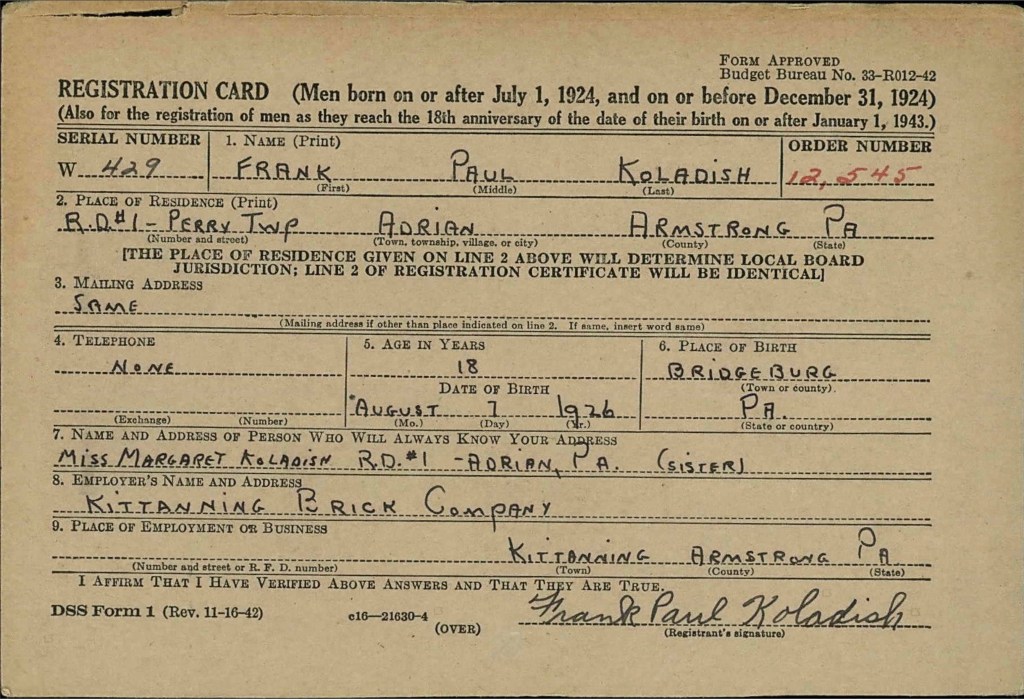 FORM APPROVED
Budget Bureau No. 33-R012-42
REGISTRATION CARD (Men born on or after July 1, 1924, and on or before December 31, 1924)
(Also for the registration of men as they reach the 18th anniversary of the date of their birth on or after January 1, 1943.)
SERIAL NUMBER 1. NAME (Print) ORDER NUMBER
W 429 FRANK PAUL KOLADISH 12,545
(First) (Middle) (Last)
2. PLACE OF RESIDENCE (Print)
R.D.#1- PERRY TWP ADRIAN ARMSTRONG PA
(Number and street) (Town, township, village, or city) (County) (State)
[THE PLACE OF RESIDENCE GIVEN ON LINE 2 ABOVE WILL DETERMINE LOCAL BOARD
JURISDICTION; LINE 2 OF REGISTRATION CERTIFICATE WILL BE IDENTICAL]
3. MAILING ADDRESS
SAME
(Mailing address if other than place indicated on line 2. If same, insert word same)
4. TELEPHONE 5. AGE IN YEARS 6. PLACE OF BIRTH
NONE 18 BRIDGEBURG
DATE OF BIRTH (Town or county)
AUGUST 7 1926 PA.
(Exchange) (Number) (Mo.) (Day) (Yr.) (State or country)
7. NAME AND ADDRESS OF PERSON WHO WILL ALWAYS KNOW YOUR ADDRESS
MISS MARGARET KOLADISH R.D.#1 -ADRIAN, PA. (SISTER)
8. EMPLOYER'S NAME AND ADDRESS
KITTANNING BRICK COMPANY
9. PLACE OF EMPLOYMENT OR BUSINESS
KITTANNING ARMSTRONG PA
(Number and street or R. F. D. number) (Town) (County) (State)
I AFFIRM THAT I HAVE VERIFIED ABOVE ANSWERS AND THAT THEY ARE TRUE.
DSS Form 1 (Rev. 11-16-42) c16—21630-4 Frank Paul Koladish
(OVER) (Registrant's signature)